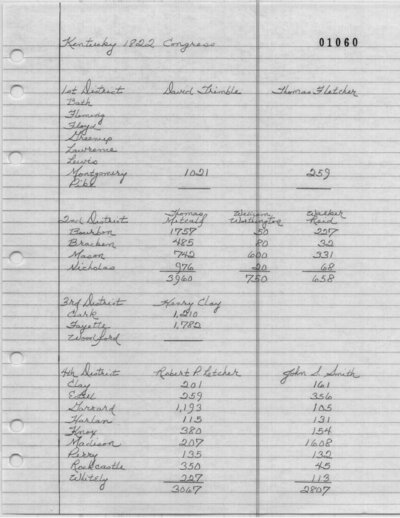 Kentucky 1822 Congress 01060
1st District David Trimble Thomas Fletcher
Bath
Fleming
Floyd
Greenup
Lawrence
Lewis
Montgomery 1021 259
Pike
Thomas William Walker
2nd District Metcalf Worthington Reid
Bourbon 1757 50 227
Bracken 485 80 32
Mason 742 600 331
Nicholas 976 20 68
3960 750 658
3rd District Henry Clay
Clark 1,210
Fayette 1,782
Woodford
4th District Robert P. Letcher John S. Smith
Clay 201 161
Estel 259 356
Garrard 1,193 105
Harlan 115 131
Knox 380 154
Madison 207 1608
Perry 135 132
Rockcastle 350 45
Whitely 227 113
3067 2807